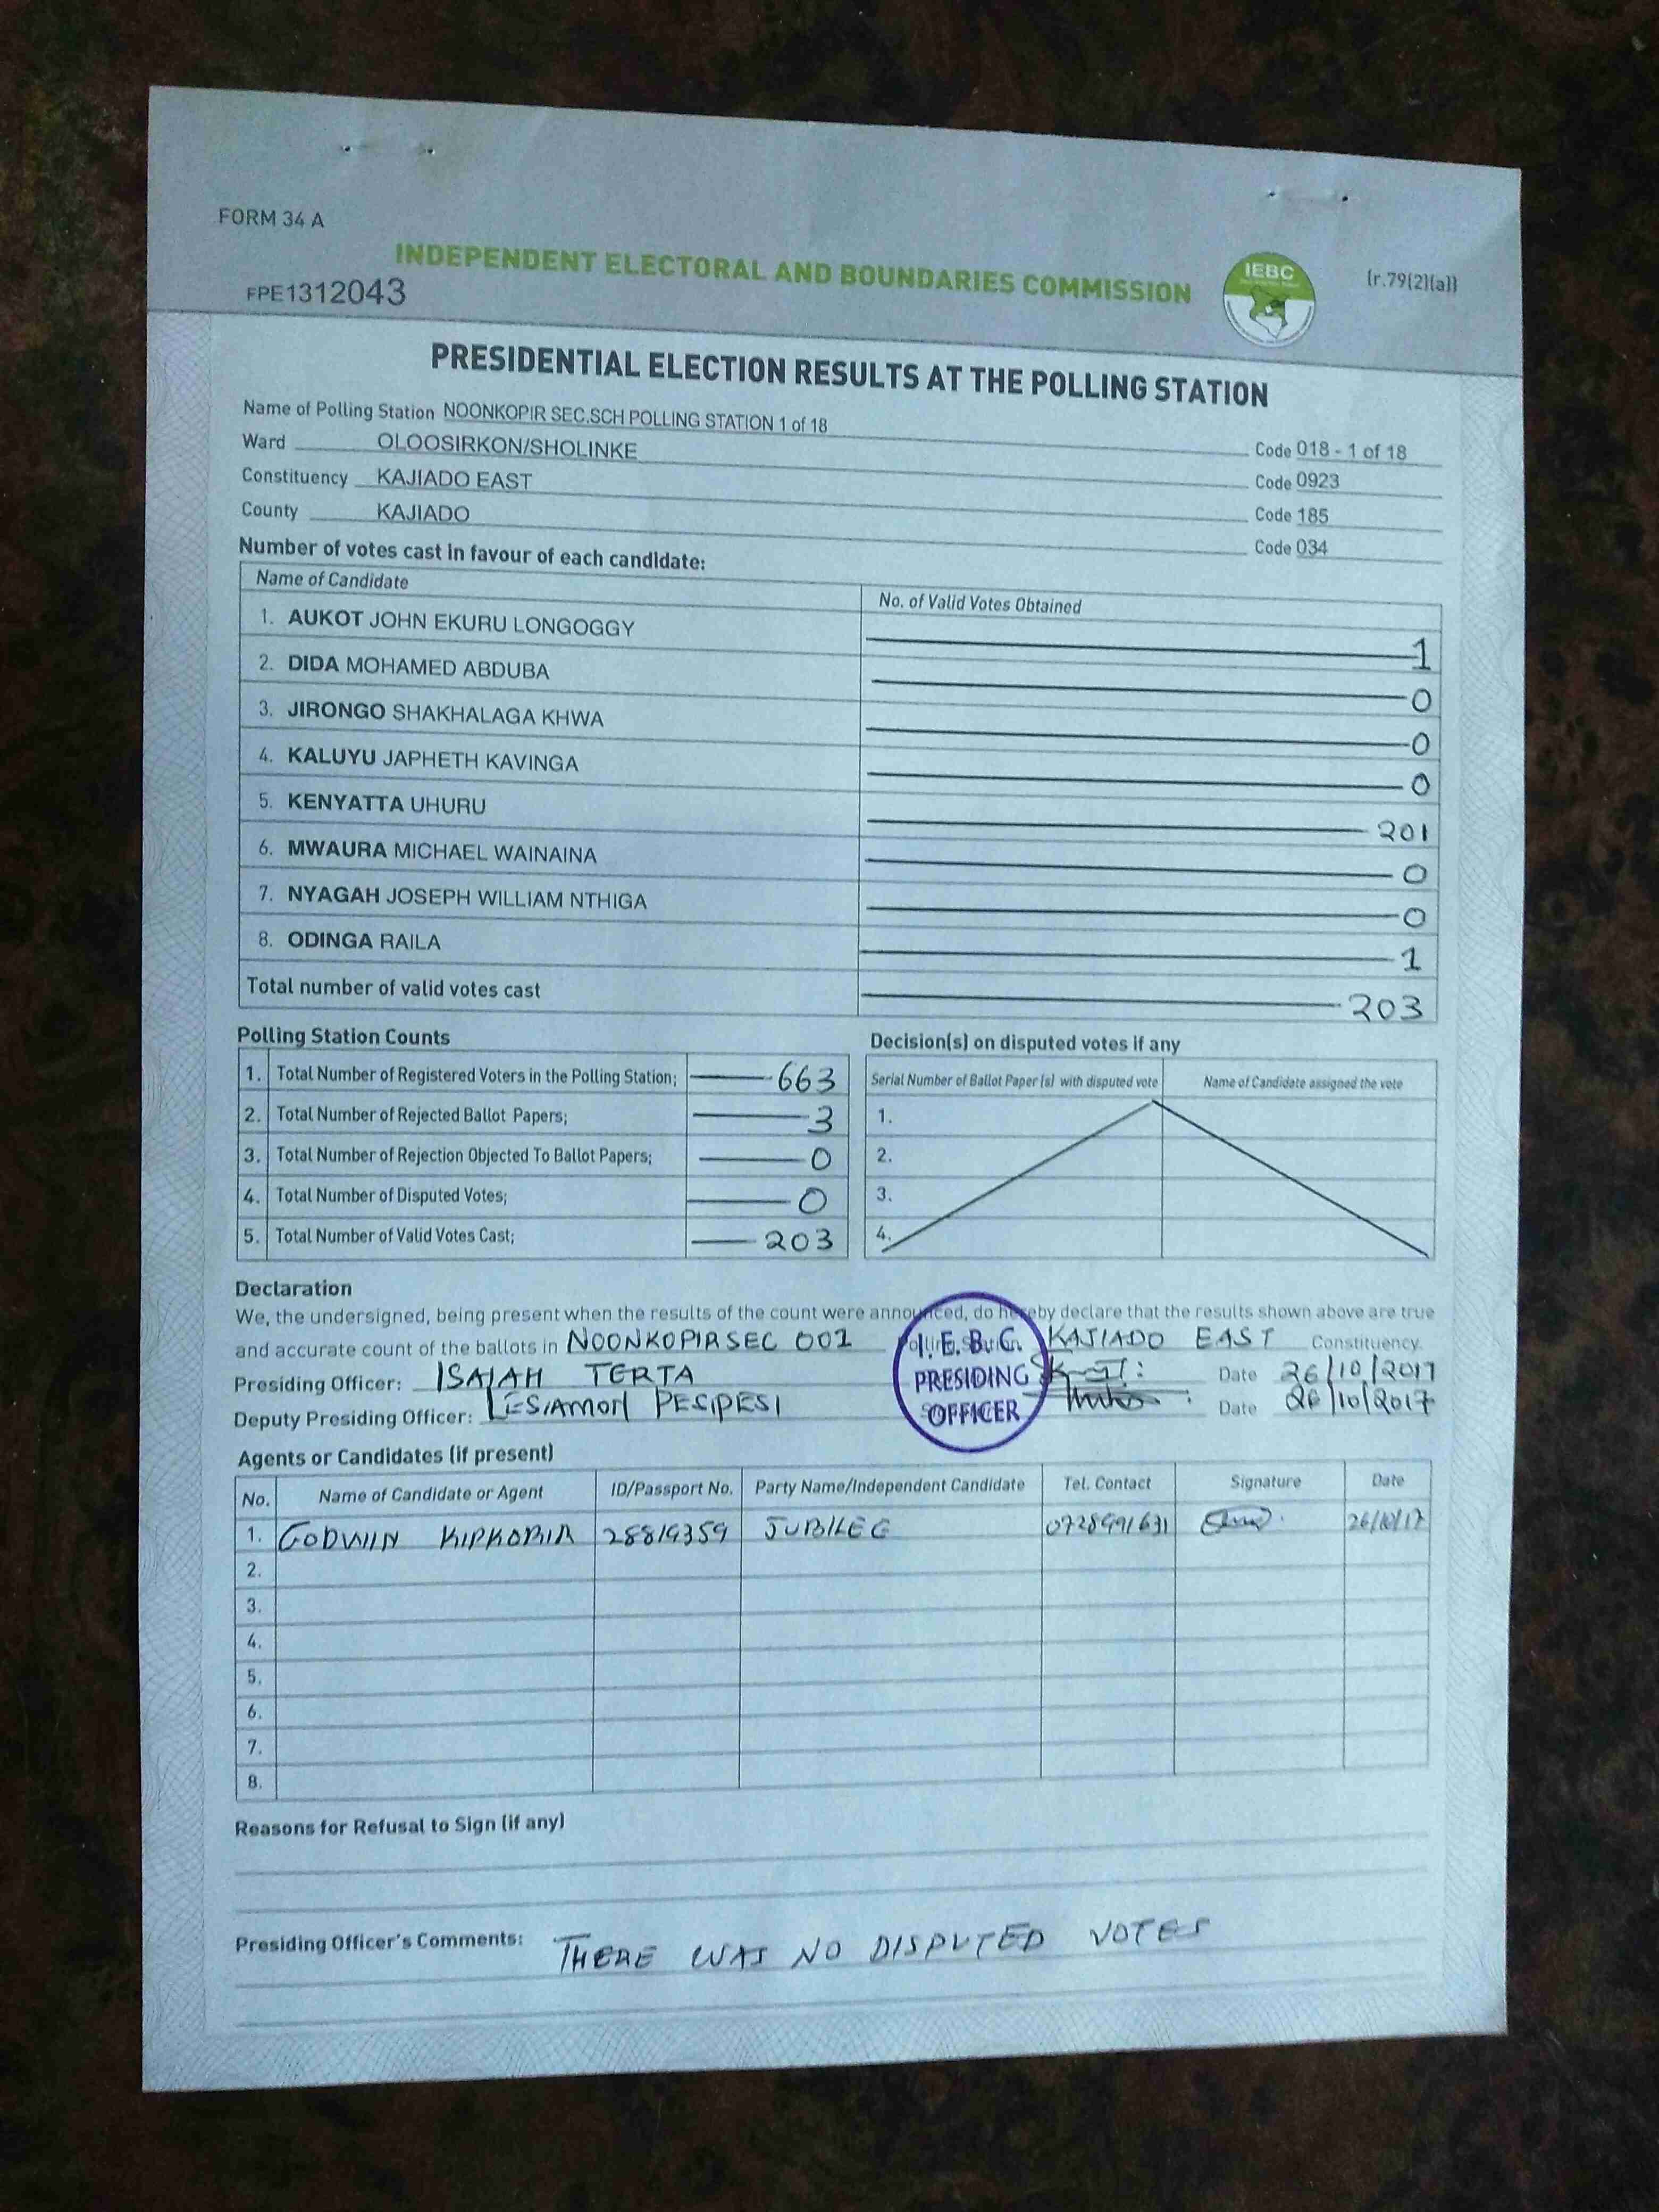 FORM 34 A
INDEPENDENT ELECTORAL AND BOUNDARIES COMMISSION
IEBC
(r.79(2)(a))
FPE1312043
PRESIDENTIAL ELECTION RESULTS AT THE POLLING STATION
Name of Polling Station NOONKOPIR SEC.SCH POLLING STATION 1 of 18 Code 018 - 1 of 18
Ward OLOOSIRKON/SHOLINKE Code 0923
Constituency KAJIADO EAST Code 185
County KAJIADO Code 034
Number of votes cast in favour of each candidate:
Name of Candidate No. of Valid Votes Obtained
1. AUKOT JOHN EKURU LONGOGGY 1
2. DIDA MOHAMED ABDUBA 0
3. JIRONGO SHAKHALAGA KHWA 0
4. KALUYU JAPHETH KAVINGA 0
5. KENYATTA UHURU 201
6. MWAURA MICHAEL WAINAINA 0
7. NYAGAH JOSEPH WILLIAM NTHIGA 0
8. ODINGA RAILA 1
Total number of valid votes cast 203
Polling Station Counts
1. Total Number of Registered Voters in the Polling Station; 663
2. Total Number of Rejected Ballot Papers; 3
3. Total Number of Rejection Objected To Ballot Papers; 0
4. Total Number of Disputed Votes; 0
5. Total Number of Valid Votes Cast; 203
Decision(s) on disputed votes if any
Serial Number of Ballot Paper(s) with disputed vote Name of Candidate assigned the vote
1.
2.
3.
4.
Declaration
We, the undersigned, being present when the results of the count were announced, do hereby declare that the results shown above are true
and accurate count of the ballots in NOONKOPIR SEC 001 KAJIADO EAST Constituency
Presiding Officer: ISAIAH TERTA Date 26/10/2017
Deputy Presiding Officer: LESIAMON PESIPESI Date 26/10/2017
I.E.B.C.
PRESIDING
OFFICER
Agents or Candidates (if present)
No. Name of Candidate or Agent ID/Passport No. Party Name/Independent Candidate Tel. Contact Signature Date
1. GODWIN KIPKORIR 28819359 JUBILEE 0728991631 26/10/17
2.
3.
4.
5.
6.
7.
8.
Reasons for Refusal to Sign (if any)
Presiding Officer's Comments: THERE WAS NO DISPUTED VOTES